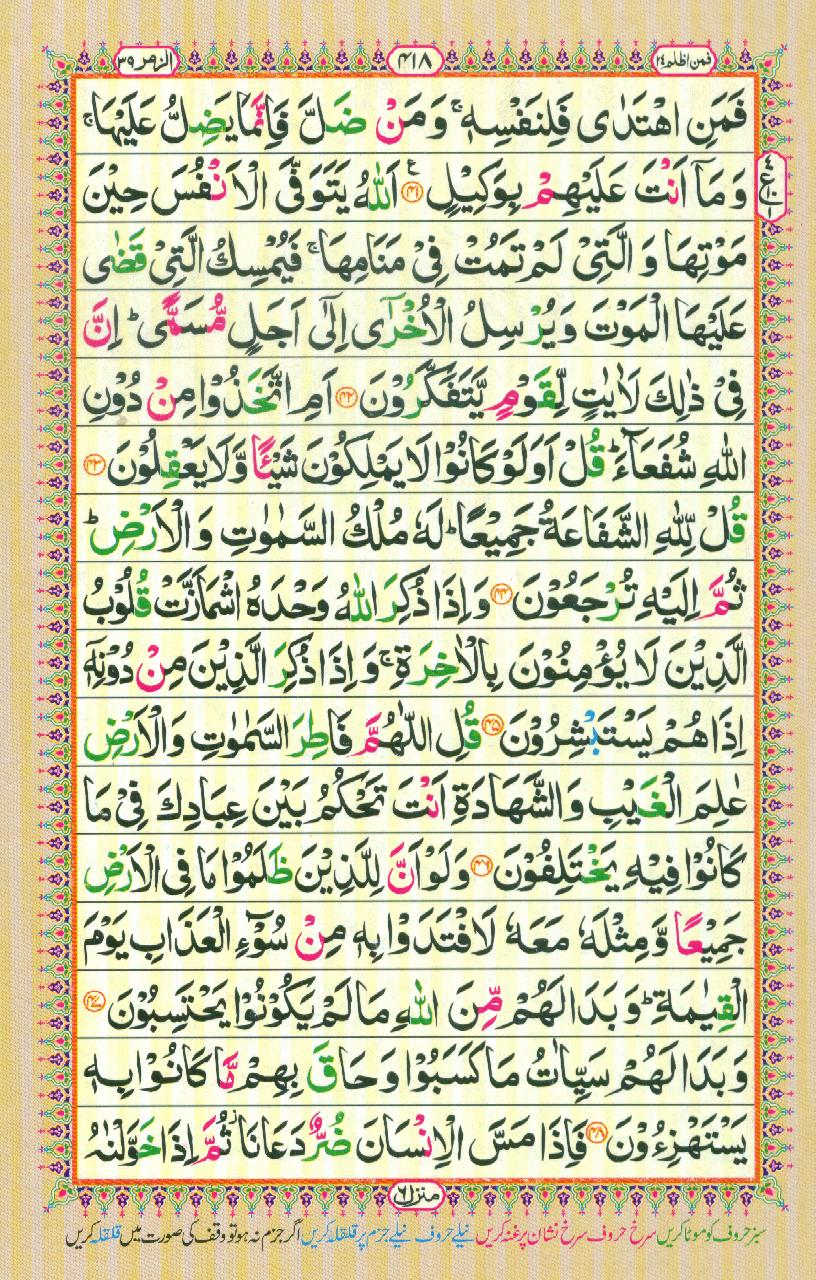 فمن اظلم ٢٤
٤١٨
الزمر ٣٩
فَمَنِ اهْتَدٰى فَلِنَفْسِهٖ ۚ وَمَنْ ضَلَّ فَاِنَّمَا يَضِلُّ عَلَيْهَا ۚ
وَمَاۤ اَنْتَ عَلَيْهِمْ بِوَكِيْلٍ ﴿٤١﴾ ع اَللّٰهُ يَتَوَفَّى الْاَنْفُسَ حِيْنَ
مَوْتِهَا وَالَّتِيْ لَمْ تَمُتْ فِيْ مَنَامِهَا ۚ فَيُمْسِكُ الَّتِيْ قَضٰى
عَلَيْهَا الْمَوْتَ وَيُرْسِلُ الْاُخْرٰٓى اِلٰٓى اَجَلٍ مُّسَمًّى ؕ اِنَّ
فِيْ ذٰلِكَ لَاٰيٰتٍ لِّقَوْمٍ يَّتَفَكَّرُوْنَ ﴿٤٢﴾ اَمِ اتَّخَذُوْا مِنْ دُوْنِ
اللّٰهِ شُفَعَآءَ ؕ قُلْ اَوَلَوْ كَانُوْا لَا يَمْلِكُوْنَ شَيْـًٔا وَّلَا يَعْقِلُوْنَ ﴿٤٣﴾
قُلْ لِّلّٰهِ الشَّفَاعَةُ جَمِيْعًا ؕ لَهٗ مُلْكُ السَّمٰوٰتِ وَالْاَرْضِ ؕ
ثُمَّ اِلَيْهِ تُرْجَعُوْنَ ﴿٤٤﴾ وَاِذَا ذُكِرَ اللّٰهُ وَحْدَهُ اشْمَاَزَّتْ قُلُوْبُ
الَّذِيْنَ لَا يُؤْمِنُوْنَ بِالْاٰخِرَةِ ۚ وَاِذَا ذُكِرَ الَّذِيْنَ مِنْ دُوْنِهٖۤ
اِذَا هُمْ يَسْتَبْشِرُوْنَ ﴿٤٥﴾ قُلِ اللّٰهُمَّ فَاطِرَ السَّمٰوٰتِ وَالْاَرْضِ
عٰلِمَ الْغَيْبِ وَالشَّهَادَةِ اَنْتَ تَحْكُمُ بَيْنَ عِبَادِكَ فِيْ مَا
كَانُوْا فِيْهِ يَخْتَلِفُوْنَ ﴿٤٦﴾ وَلَوْ اَنَّ لِلَّذِيْنَ ظَلَمُوْا مَا فِي الْاَرْضِ
جَمِيْعًا وَّمِثْلَهٗ مَعَهٗ لَافْتَدَوْا بِهٖ مِنْ سُوْٓءِ الْعَذَابِ يَوْمَ
الْقِيٰمَةِ ؕ وَبَدَا لَهُمْ مِّنَ اللّٰهِ مَا لَمْ يَكُوْنُوْا يَحْتَسِبُوْنَ ﴿٤٧﴾
وَبَدَا لَهُمْ سَيِّاٰتُ مَا كَسَبُوْا وَحَاقَ بِهِمْ مَّا كَانُوْا بِهٖ
يَسْتَهْزِءُوْنَ ﴿٤٨﴾ فَاِذَا مَسَّ الْاِنْسَانَ ضُرٌّ دَعَانَا ۫ ثُمَّ اِذَا خَوَّلْنٰهُ
منزل ٦
سبز حروف کو موٹا کریں سرخ حروف سرخ نشان پر غنہ کریں نیلے حروف نیلے جزم پر قلقلہ کریں اگر جزم نہ ہو تو وقف کی صورت میں قلقلہ کریں